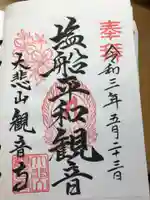 奉拝
令和三年五月二十三日
塩船平和観音
大悲山観音寺